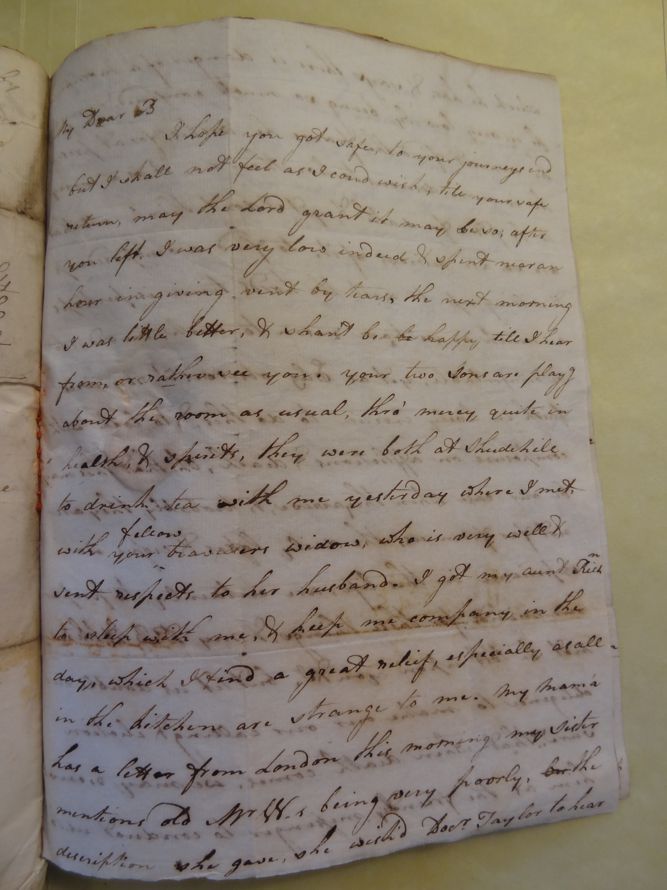 My Dear B
I hope you got safe, to your journeys end
but I shall not feel as I coud wish, till your safe
return, may the Lord grant it may be so, after
you left, I was very low indeed & spent near an
hour in giving vent by tears, the next morning
I was little better, & shant be be happy till I hear
from, or rather see you. your two Sons are playg
about the room as usual, thro' mercy quite in
health, & spirits, they were both at Shudehill
to drink tea with me yesterday where I met
fellow
with your travelers widow, who is very well &
sent respects to her husband. I got my aunt Richn
to sleep with me, & keep me company in the
day, which I find a great relief, especially as all
in the kitchen are strange to me. my mama
has a letter from London this morning my sister
mentions old Mr W.s being very poorly, the
description she gave, she wish'd Docr Taylor to hear